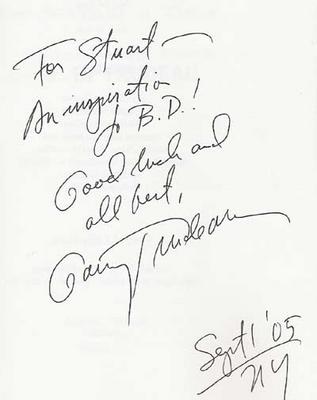 For Stuart —
An inspiration
to B.D.!
Good luck and
all best,
Garry Trudeau
Sept 1 '05
NY